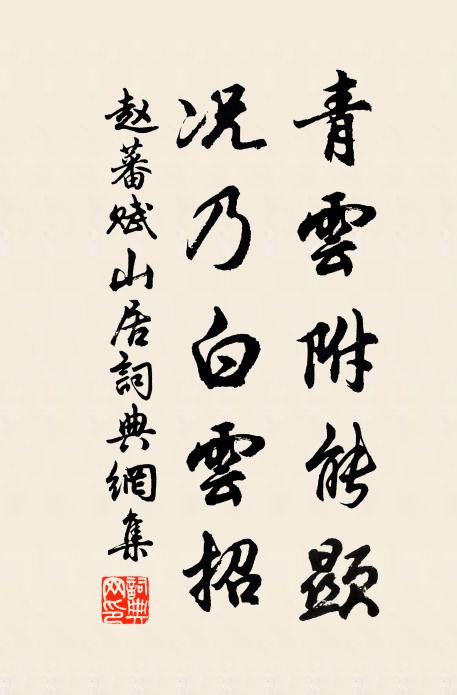 青雲附能顯
况乃白雲招
赵蕃赋山居詞典網集
詞典网印